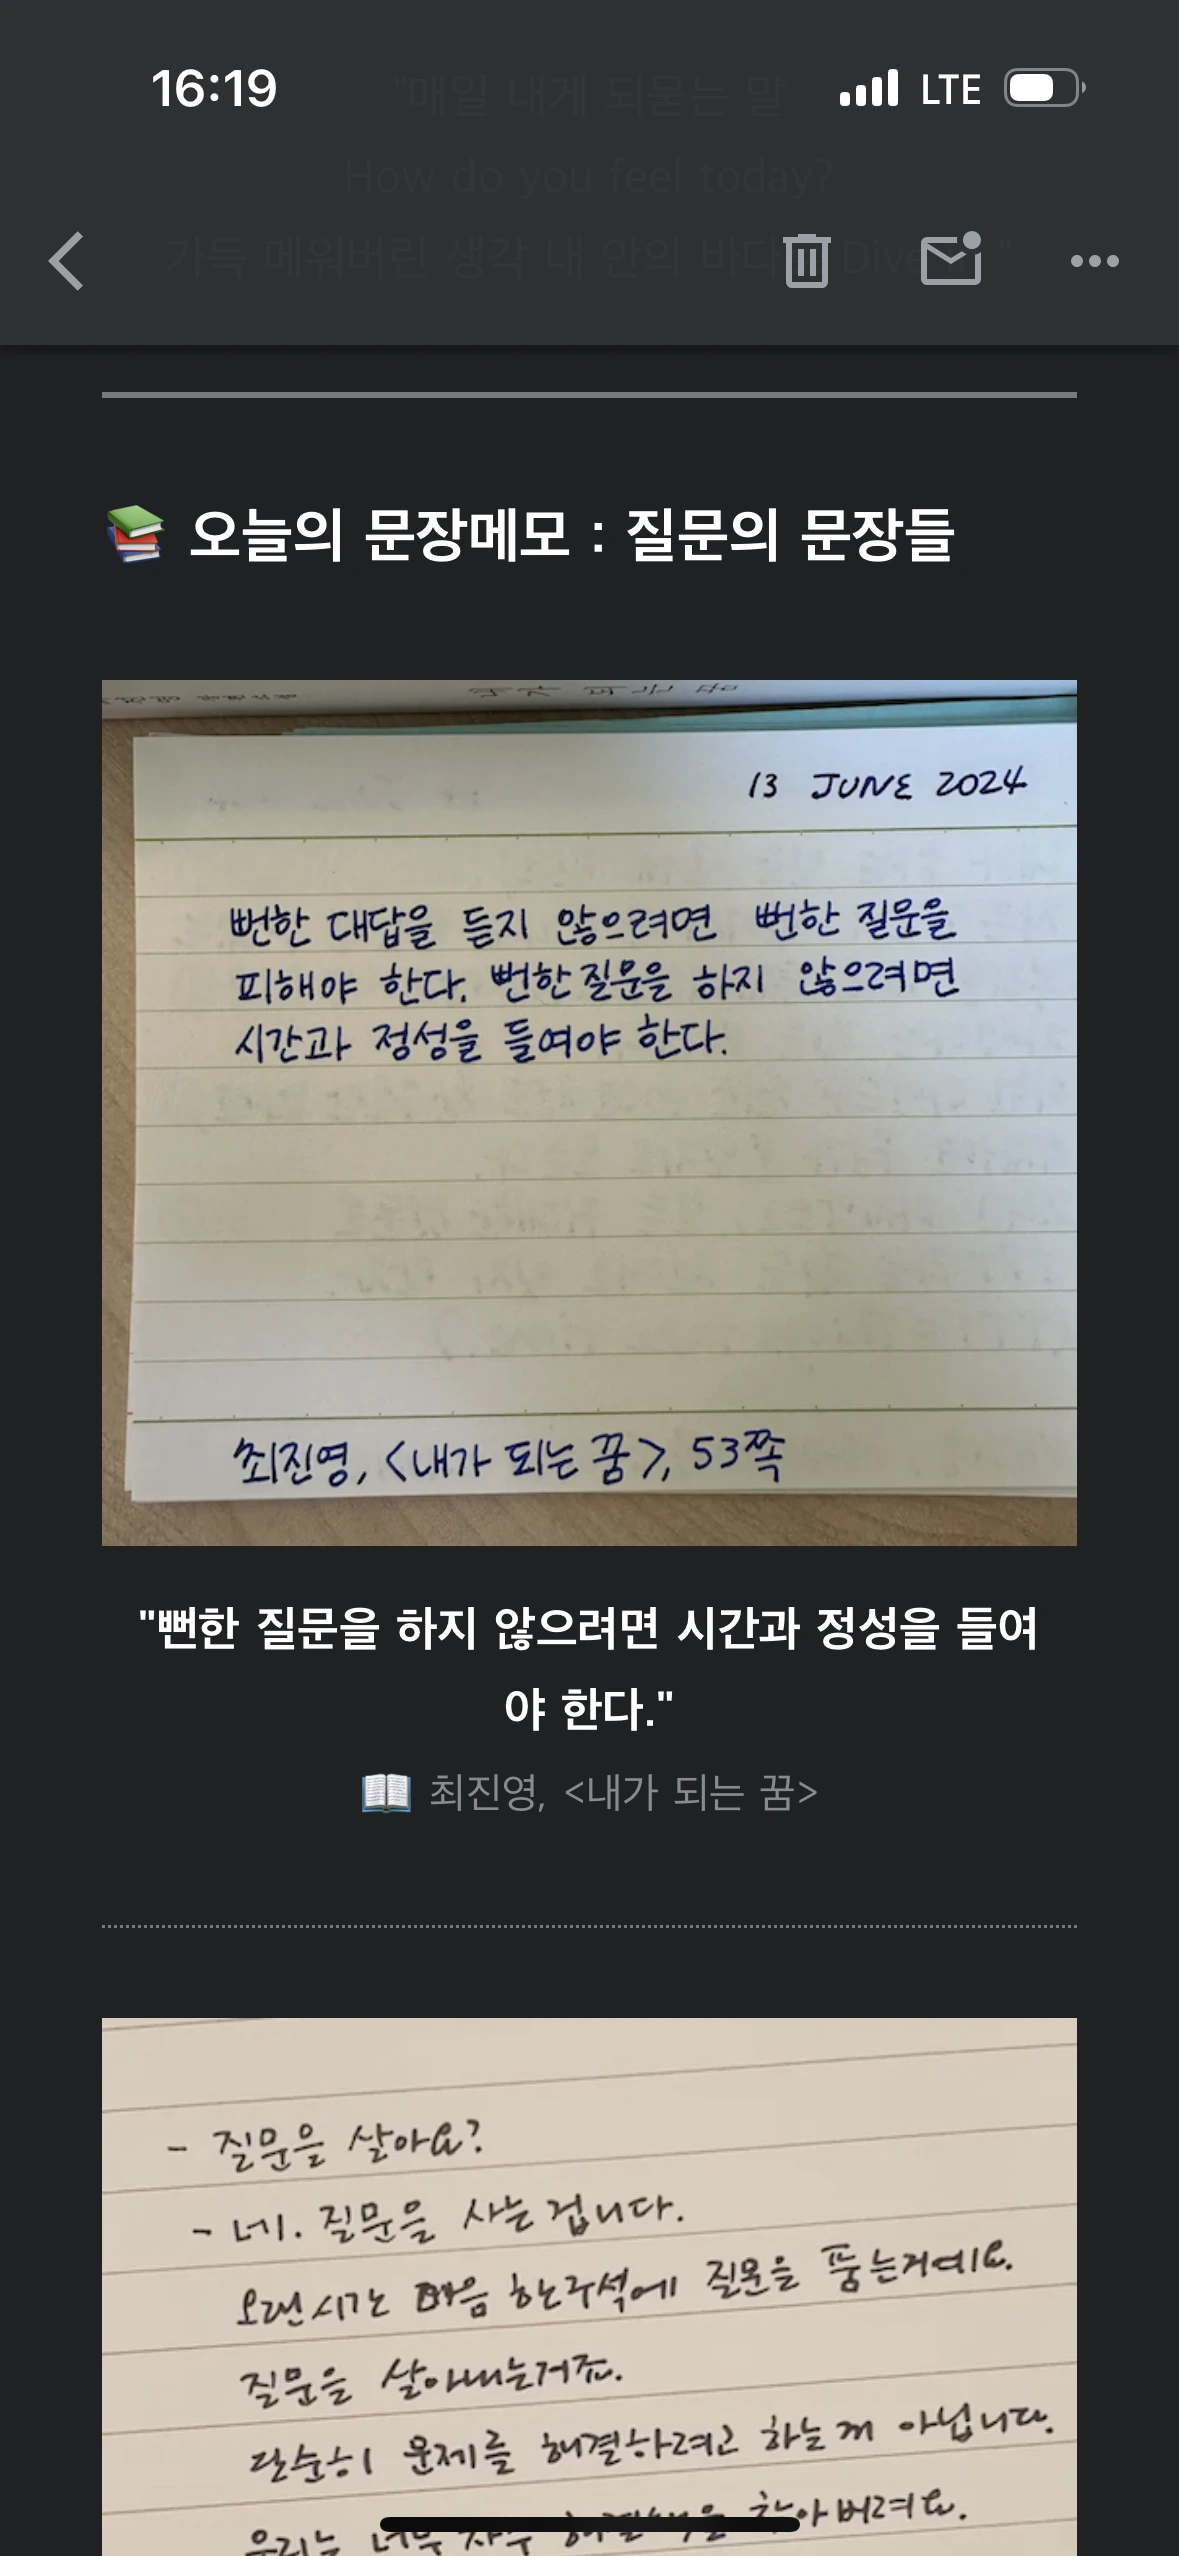 16:19
LTE
"매일 내게 되묻는 말
How do you feel today?
가득 메워버린 생각 내 안의 바다 Dive "
📚 오늘의 문장메모 : 질문의 문장들
내가 되는 꿈
13 JUNE 2024
뻔한 대답을 듣지 않으려면 뻔한 질문을
피해야 한다. 뻔한 질문을 하지 않으려면
시간과 정성을 들여야 한다.
최진영, <내가 되는 꿈>, 53쪽
"뻔한 질문을 하지 않으려면 시간과 정성을 들여
야 한다."
📖 최진영, <내가 되는 꿈>
- 질문을 살아요?
- 네. 질문을 사는 겁니다.
오랜시간 마음 한구석에 질문을 품는거예요.
질문을 살아내는거죠.
단순히 문제를 해결하려고 하는게 아닙니다.
우리는 너무 자주 해결책을 찾아버려요.